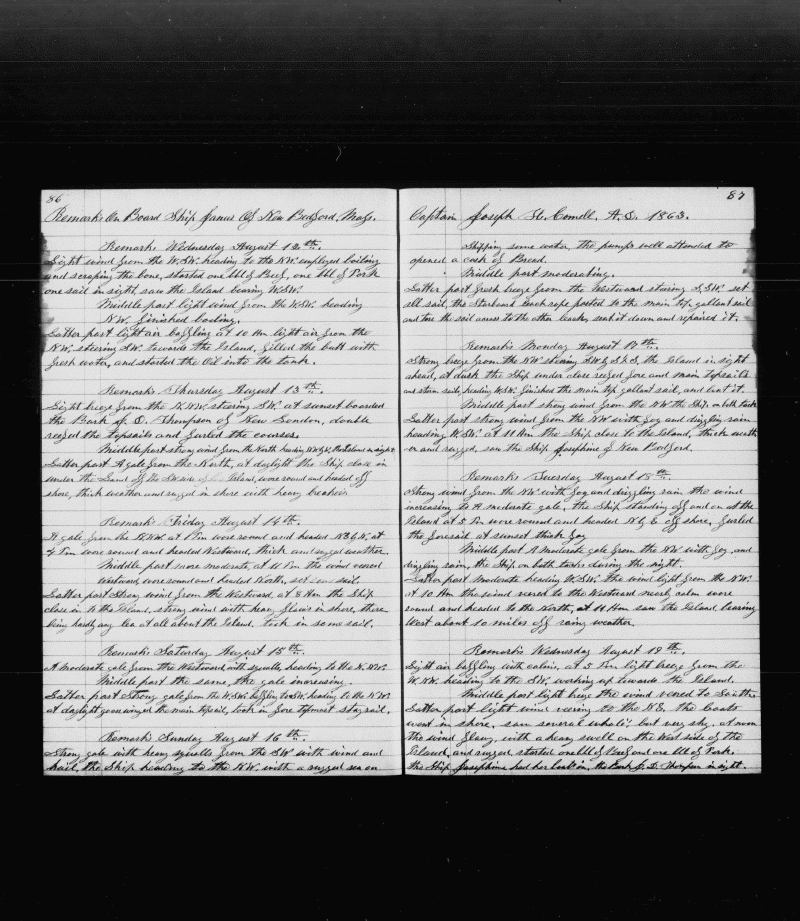 86
Remarks On Board Ship Janus Of New Bedford, Mass.
Remarks Wednesday August 12th.
Light wind from the W.S.W. heading to the N.W. employed boiling
and scraping the bone, started one bbl of Beef, one bbl of Pork
one sail in sight, saw the Island bearing W.S.W.
Middle part light wind from the W.S.W. heading
N.W. finished boiling.
Latter part light air baffling at 10 Am light air from the
N.W. steering S.W. towards the Island, filled the butt with
fresh water, and started the Oil into the tank.
Remarks Thursday August 13th.
Light breeze from the N.N.W. steering S.W. at sunset boarded
the Bark J. D. Thompson of New London, double
reefed the topsails and furled the courses.
Middle part strong wind from the North heading the Island in sight
Latter part A gale from the North, at daylight the Ship close in
under the Land of the Island, wore round and headed off
shore, thick weather and rugged in shore with heavy breakers.
Remarks Friday August 14th.
A gale from the N.N.W. at 1 Pm wore round and headed N.E.byN. at
4 Pm wore round and headed Westward, thick and rugged weather.
Middle part more moderate, at 11 Pm the wind veered
Westward, wore round and headed North, set some sail.
Latter part Strong wind from the Westward, at 8 Am the Ship
close in to the Island, strong wind with heavy flaws in shore, there
being hardly any lea at all about the Island, took in some sail.
Remarks Saturday August 15th.
A moderate gale from the Westward with squalls, heading to the N.NW.
Middle part the same, the gale increasing.
Latter part Strong gale from the W.S.W. baffling to S.W. heading to the N.W.
at daylight goosewinged the main topsail, took in fore topmost stay sail.
Remarks Sunday August 16th.
Strong gale with heavy squalls from the S.W. with wind and
hail, the Ship heading to the N.W. with a rugged sea on
87
Captain Joseph W. Cornell, A.D. 1863.
Shipping some water the pumps well attended to
opened a cask of Bread.
Middle part moderating.
Latter part fresh breeze from the Westward steering S.SW. set
all sail, the Starboard leach rope parted to the main top gallant sail
and tore the sail across to the other leach, sent it down and repaired it.
Remarks Monday August 17th.
Strong breeze from the N.W. steering S.W. & S.S.W. the Island in sight
ahead, at dark the Ship under close reefed fore and main topsails
and stern sails, heading W.S.W. finished the main top gallant sail, and bent it.
Middle part strong wind from the N.W. the Ship on both tacks
Latter part strong wind from the N.W. with fog and drizzling rain
heading W.S.W. at 11 Am the Ship close to the Island, thick weath
er and rugged, saw the Ship Josephine of New Bedford.
Remarks Tuesday August 18th.
Strong wind from the N.W. with fog and drizzling rain the wind
increasing to A moderate gale, the Ship standing off and on at the
Island at 5 Pm wore round and headed N.byE. off shore, furled
the foresail at sunset thick fog
Middle part A moderate gale from the N.W. with fog and
drizzling rain, the Ship on both tacks during the night.
Latter part Moderate heading W.S.W. the wind light from the N.W.
at 10 Am the wind veered to the Westward nearly calm wore
round and headed to the North, at 11 Am saw the Island bearing
West about 10 miles off rainy weather.
Remarks Wednesday August 19th.
Light air baffling with calms, at 5 Pm light breeze from the
W.NW. heading to the S.W. working up towards the Island.
Middle part light breeze the wind veered to South.
Latter part light wind veering to the N.E. the boats
went in shore, saw several whales, but very shy. at noon
the wind flawy, with a heavy swell on the West side of the
Island, and rugged, started one bbl of Beef and one bbl of Pork.
the Ship Josephine had her boats in, the Bark J. D. Thompson in sight.